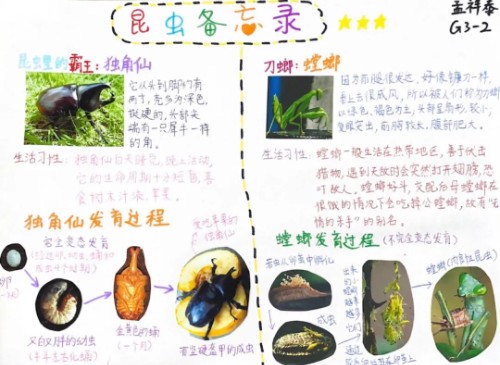 昆虫备忘录
孟祥泰
G3-2
昆虫里的霸王:独角仙
它从头到脚约有
两寸,壳多为深色,
挺硬的,头部尖
端有一只犀牛一样
的角。
生活习性:独角仙白天睡觉,晚上活动,
它的生命周期十分短暂,喜
食树木汁液、苹果。
独角仙发育过程
完全变态发育
又白又胖的幼虫
金黄色的蛹
(一个月)
有坚硬盔甲的成虫
刀螂:螳螂
因为前腿很发达,好像镰刀一样,
看上去很威风,所以被人们称为刀螂
以绿色、褐色为主,头部呈角形,较小,
复眼突出,前胸较长,腹部肥大。
生活习性:螳螂一般生活在热带地区,善于伏击
猎物,遇到天敌时会突然打开翅膀,恐
吓敌人。螳螂好斗,交配后母螳螂在
很饿的情况下会吃掉公螳螂,故有“无
情的杀手”的别名。
螳螂发育过程(不完全变态发育)
若虫从卵囊中孵化
成虫
螳螂(肉食性昆虫)